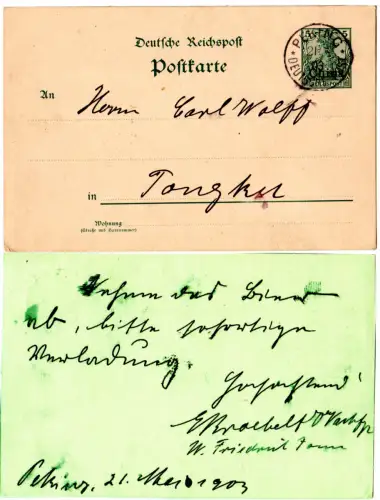 Deutsche Reichspost
Postkarte
China
An
Herrn Carl Wolff
in Tongku
Wohnung
(Straße und Hausnummer)
Nehme das Bier
ab, bitte sofortige
Verladung.
Hochachtend
W. Friedrich
Peking, 21. 1903